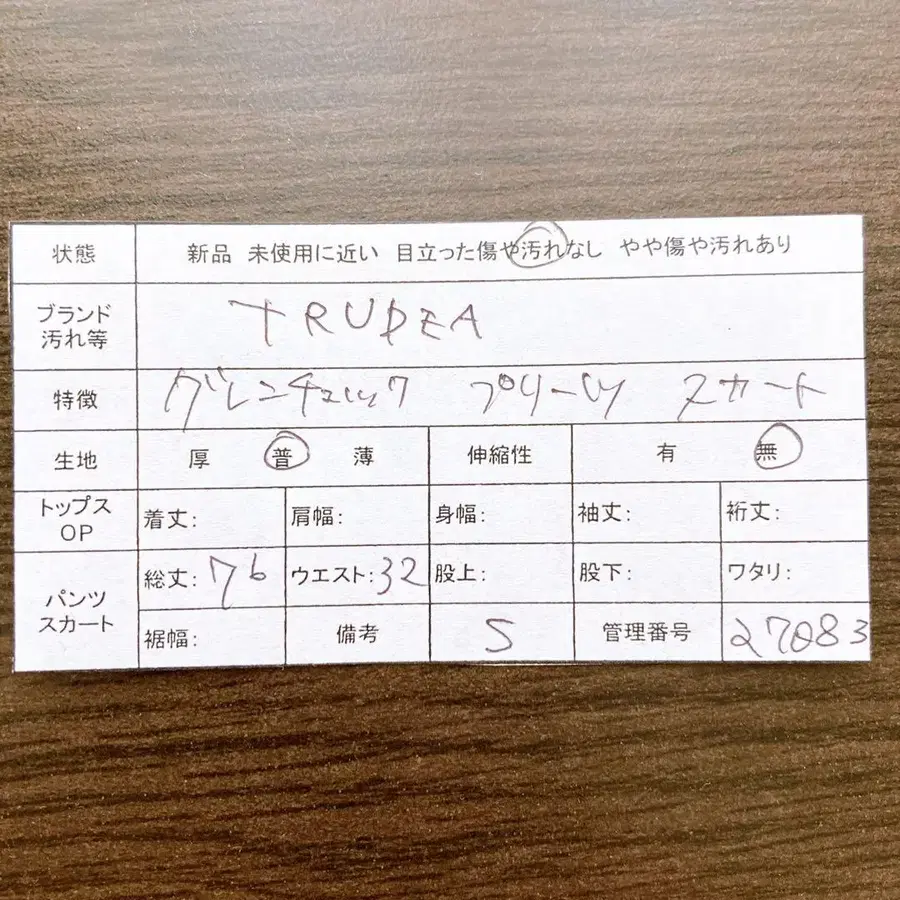 状態 新品 未使用に近い 目立った傷や汚れなし やや傷や汚れあり
ブランド
汚れ等 TRUDEA
特徴 グレンチェック プリーツ スカート
生地 厚 普 薄 伸縮性 有 無
トップス
OP 着丈: 肩幅: 身幅: 袖丈: 裄丈:
パンツ
スカート 総丈: 76 ウエスト: 32 股上: 股下: ワタリ:
裾幅: 備考 S 管理番号 27083